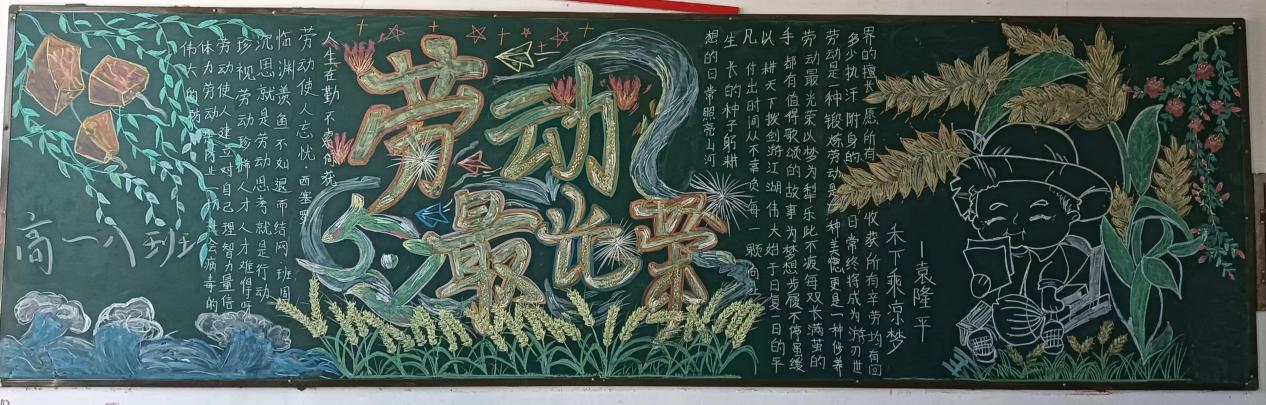 劳动
最光荣
高一八班
人生在勤 不索何获
劳动使人忘忧 西塞罗
临渊羡鱼不如退而结网 班固
沉思就是劳动思考就是行动
珍视劳动珍稀人才人才难得呀
劳动使人建立对自己理智力量信
体力劳动
社会病毒的
伟大的
界的擅长 愿所有
收获所有辛劳均有回
多少执汗附身的日常终将成为游刃世
劳动是一种锻炼劳动是一种美德更是一种修养
劳动最光荣以梦为犁乐此不疲每双长满茧的
手都有值得歌颂的故事为梦想步履不停虽缓
以耕天下拨剑浙江湖伟大始于日复一日的平
凡 付出时间从不辜负每一颗向上
生长的种子躬耕
想的日常照亮山河
禾下乘凉梦
——袁隆平